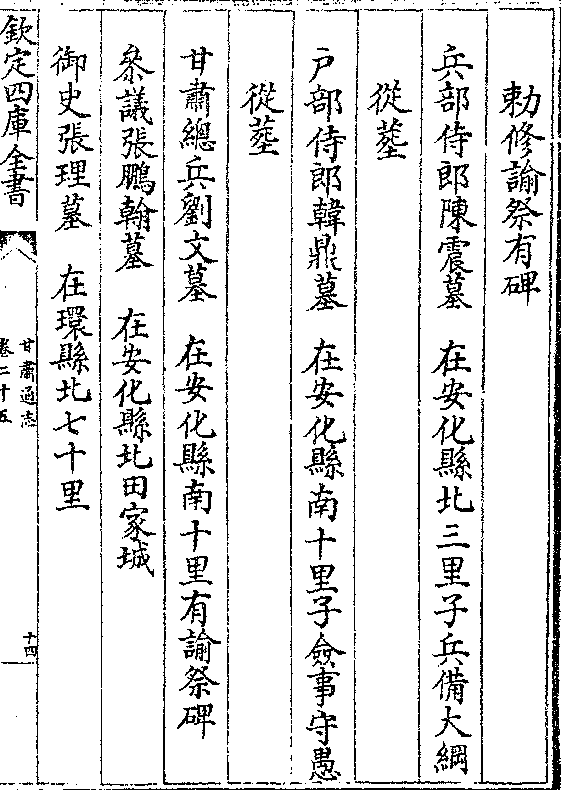 勅修諭祭有碑
兵部侍郎陳震墓　在安化縣北三里子兵備大綱
從塟
戸部侍郎韓鼎墓　在安化縣南十里子僉事守愚
從塟
甘肅總兵劉文墓　在安化縣南十里有諭祭碑
叅議張鵬翰墓　在安化縣北田家城
御史張理墓　在環縣北七十里
欽定四庫全書
甘肅通志
卷二十五
十四